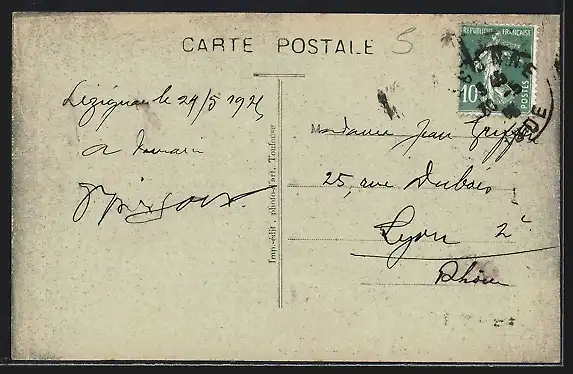 CARTE POSTALE
S
REPUBLIQUE FRANÇAISE
10 POSTES
AUDE
Lézignan le 24/5 1925
A demain
Imp.-édit. photo-d'art, Toulouse
Madame Jean
25, rue Dubois
Lyon 2e
Rhône